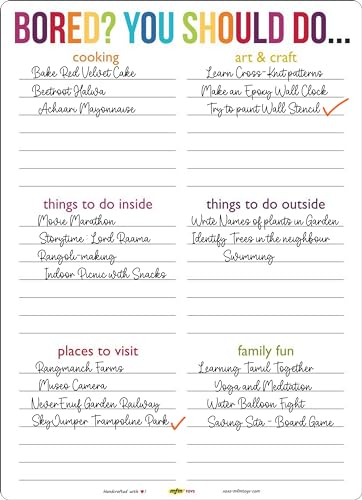 BORED? YOU SHOULD DO...
cooking
Bake Red Velvet Cake
Beetroot Halwa
Achaari Mayonnaise
art & craft
Learn Cross-Knit patterns
Make an Epoxy Wall Clock
Try to paint Wall Stencil
things to do inside
Movie Marathon
Storytime : Lord Raama
Rangoli-making
Indoor Picnic with Snacks
things to do outside
Write Names of plants in Garden
Identify Trees in the neighbour
Swimming
places to visit
Rangmanch Farms
Museo Camera
NeverEnuf Garden Railway
SkyJumper Trampoline Park
family fun
Learning Tamil Together
Yoga and Meditation
Water Balloon Fight
Saving Sita - Board Game
Handcrafted with
mfm toys